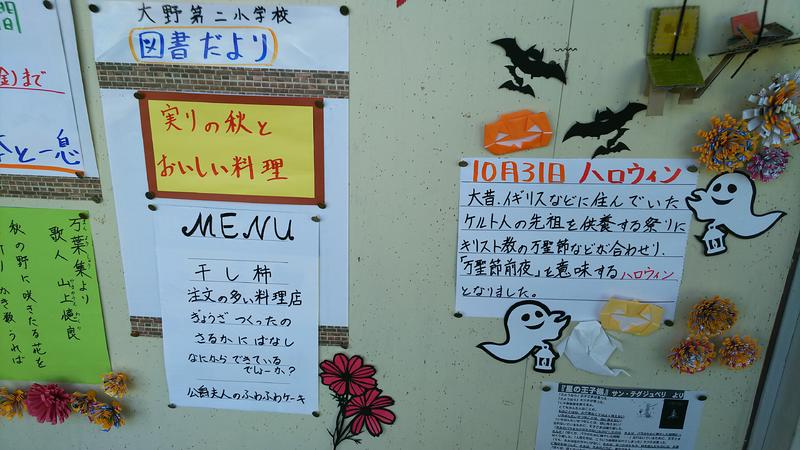 間
金)まで
本と一息
万葉集より
歌人 山上憶良
秋の野に咲きたる花を
かき数ふれば
大野第二小学校
図書だより
実りの秋と
おいしい料理
MENU
干し柿
注文の多い料理店
ぎょうざつくったの
さるかにばなし
なにからできている
でしょーか?
公爵夫人のふわふわケーキ
10月31日 ハロウィン
大昔、イギリスなどに住んでいた
ケルト人の先祖を供養する祭りに
キリスト教の万聖節などが合わせり、
「万聖節前夜」を意味するハロウィン
となりました。
『星の王子様』 サン・テグジュペリ より